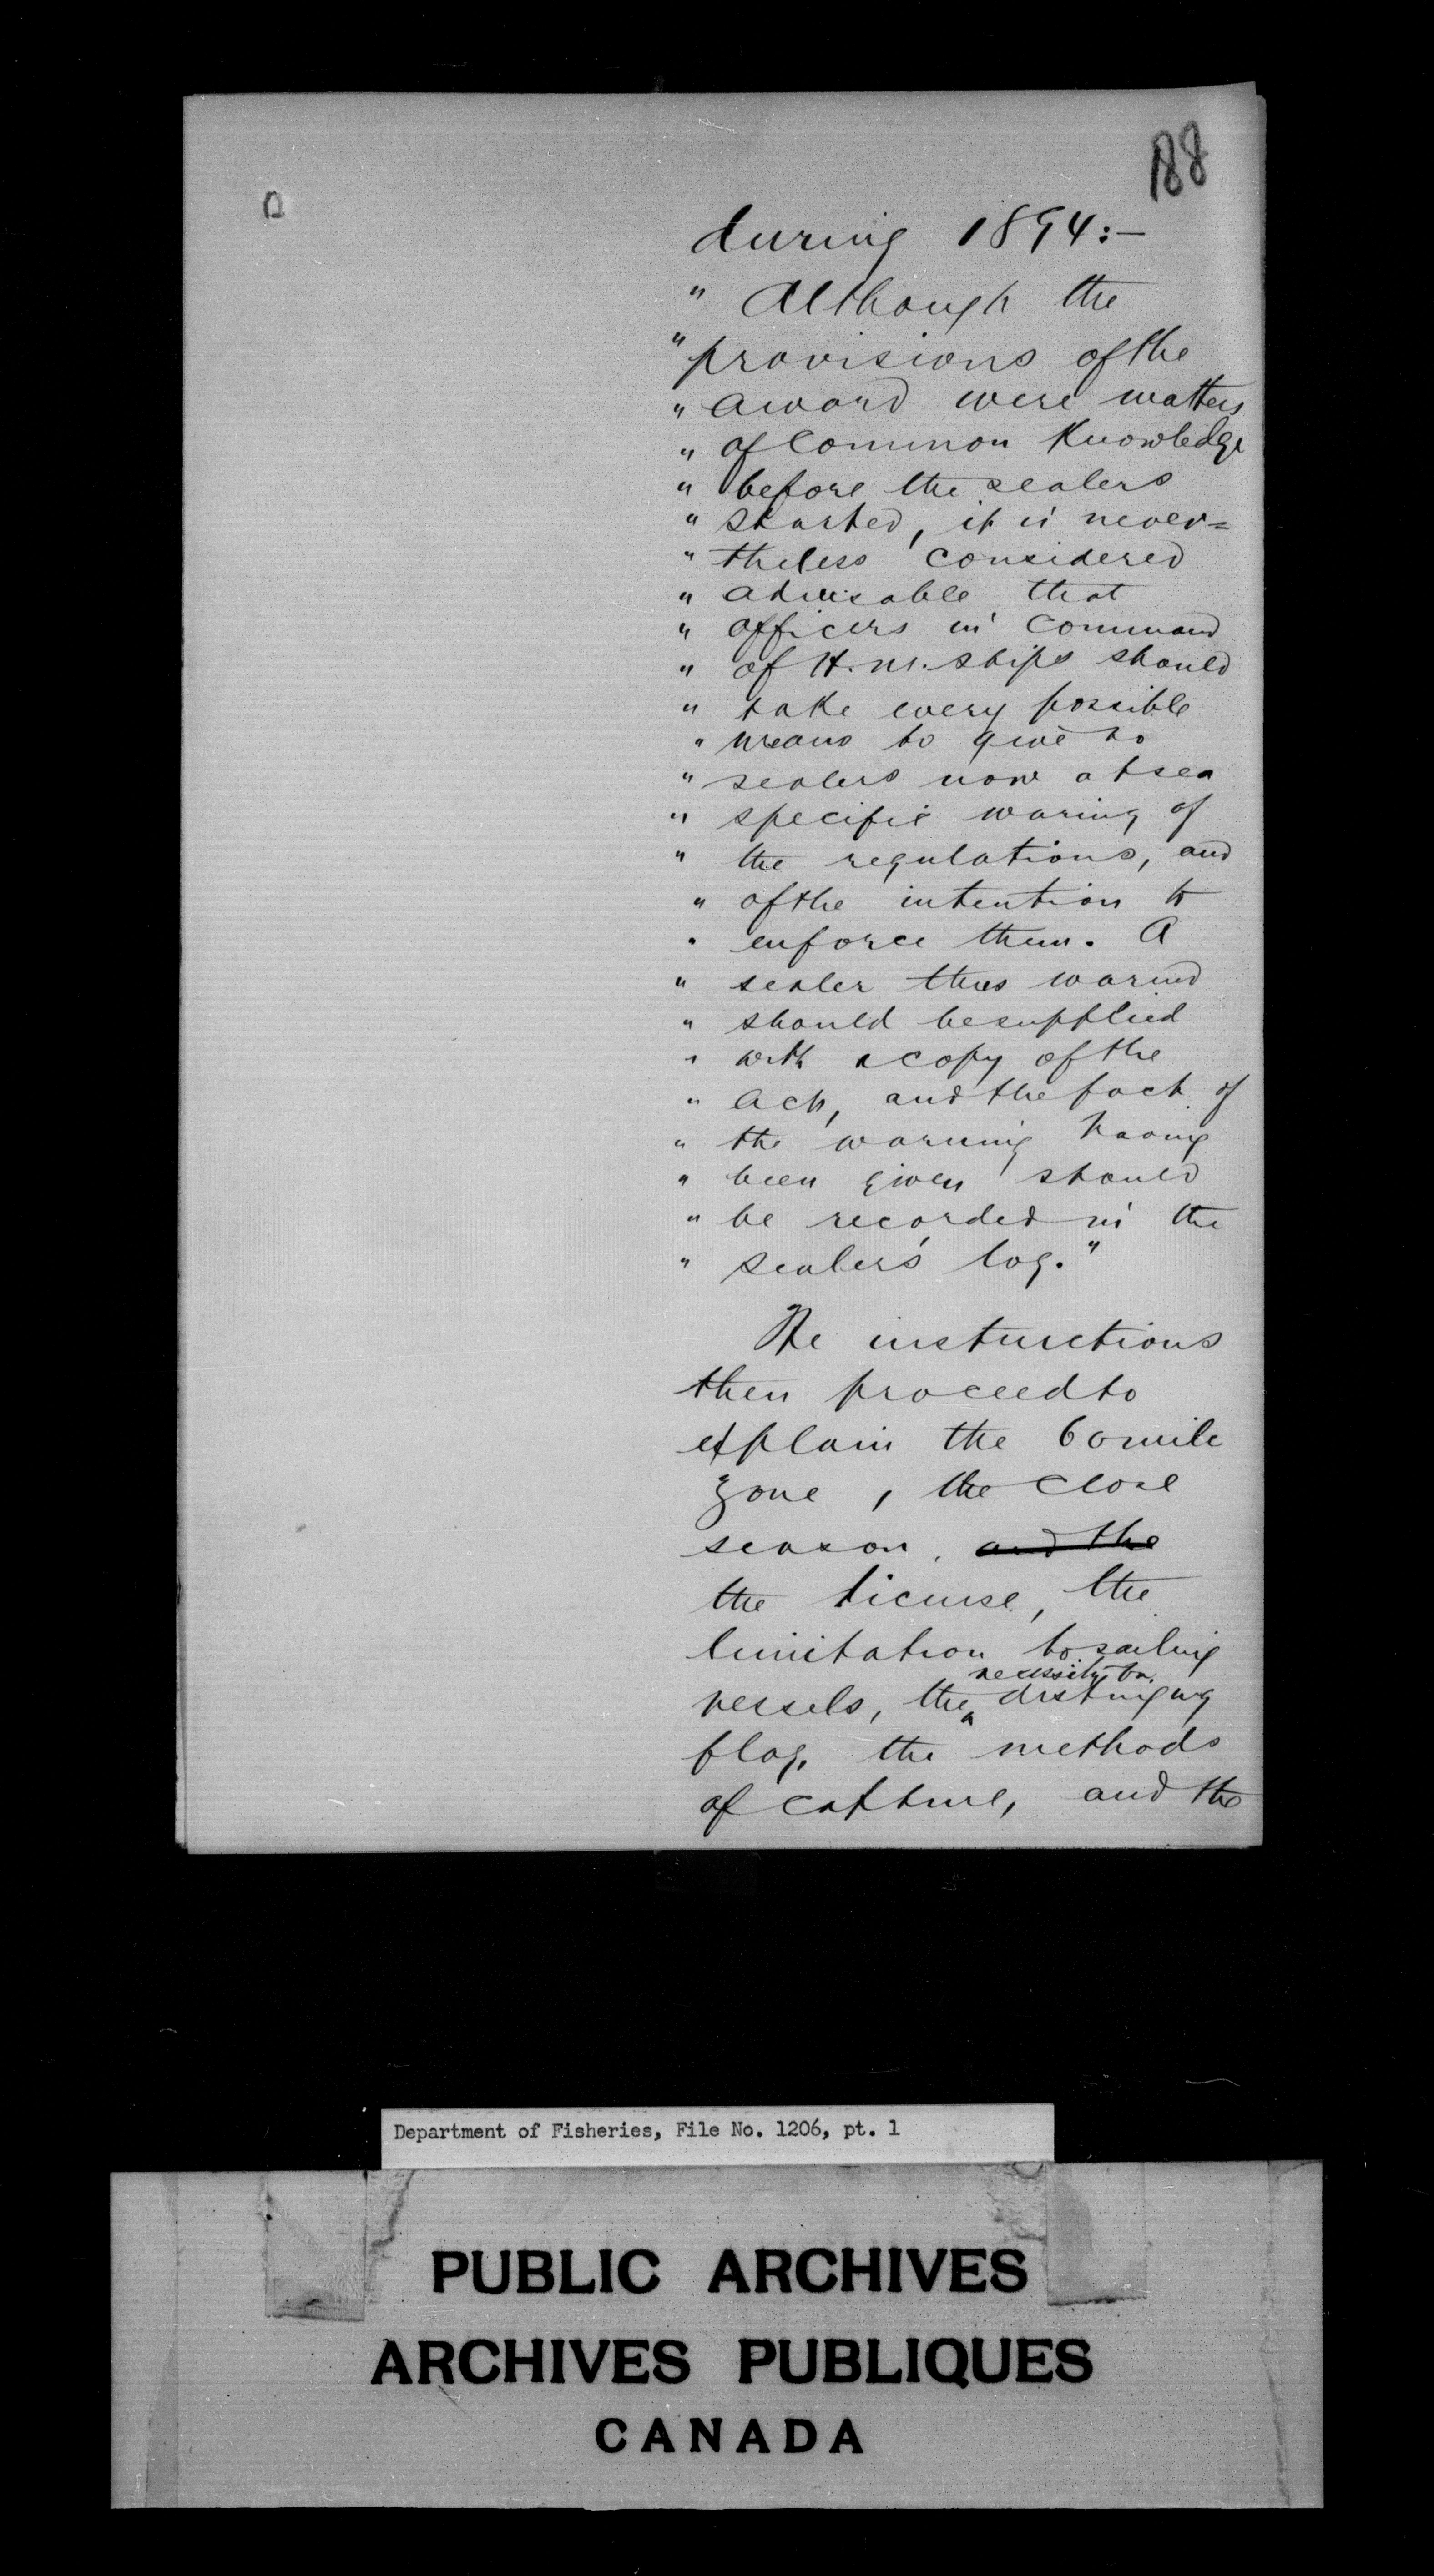 188
during 1894:—
" Although the
" provisions of the
" award were matters
" of Common Knowledge
" before the sealers
" started, it is never=
" theless considered
" advisable that
" officers in Command
" of H.M. Ships should
" take every possible
" means to give to
" sealers now at sea
" specific waring of
" the regulations, and
" of the intention to
" enforce them. A
" sealer thus warned
" should be supplied
" with a copy of the
" Act, and the fact of
" the warning having
" been given should
" be recorded in the
" sealers' log."
The instructions
then proceed to
explain the 60 mile
zone, the close
season, and the
the license, the
limitation to sailing
necessity for
vessels, the distinging
flag, the methods
of capture, and the
Department of Fisheries, File No. 1206, pt. 1
PUBLIC ARCHIVES
ARCHIVES PUBLIQUES
CANADA